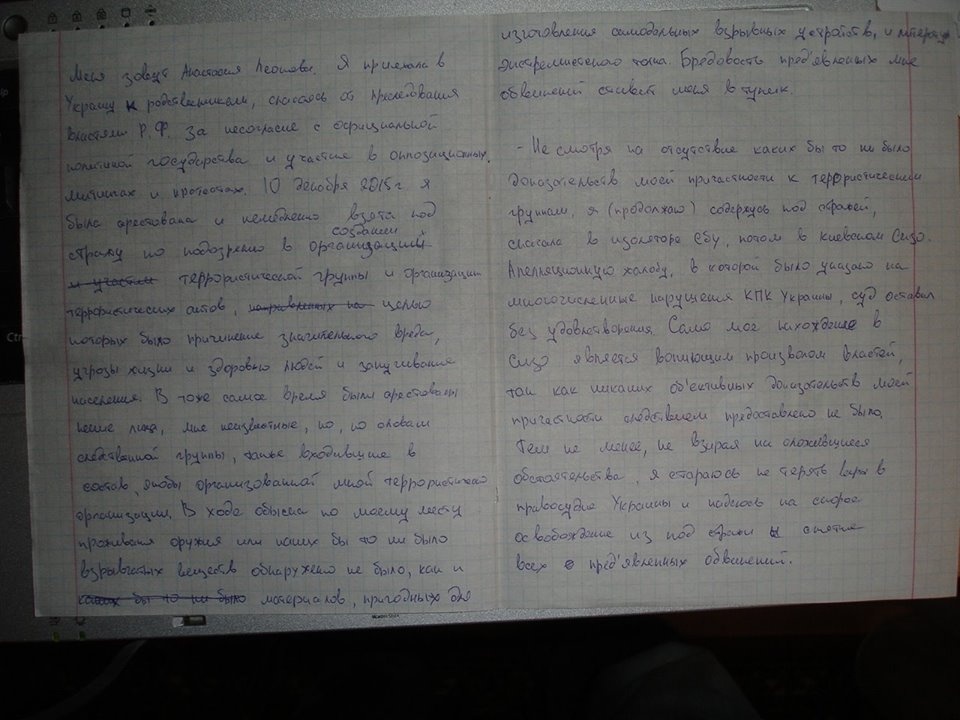 Меня зовут Анастасия Леонова. Я приехала в
Украину к родственникам, спасаясь от преследования
властями Р.Ф. за несогласие с официальной
политикой государства и участие в оппозиционных
митингах и протестах. 10 декабря 2015 г я
была арестована и немедленно взята под
создании
стражу по подозрению в организации
и участии террористической группы и организации
террористических актов, направленных на целью
которых было причинение значительного вреда,
угрозы жизни и здоровью людей и запугивание
населения. В тоже самое время были арестованы
некие лица, мне неизвестные, но, по словам
следственной группы, также входившие в
состав, якобы организованной мной террористической
организации. В ходе обыска по моему месту
проживания оружия или каких бы то ни было
взрывчатых веществ обнаружено не было, как и
каких бы то ни было материалов, пригодных для
изготовления самодельных взрывных устройств, и литературы
экстремистского толка. Бредовость пред'явленных мне
обвинений ставит меня в тупик.
- Не смотря на отсутствие каких бы то ни было
доказательств моей причастности к террористическим
группам, я (продолжаю) содержусь под стражей,
сначала в изоляторе СБУ, потом в киевском Сизо.
Апелляционную жалобу, в которой было указано на
многочисленные нарушения КПК Украины, суд оставил
без удовлетворения. Само мое нахождение в
Сизо является вопиющим произволом властей,
так как никаких об'ективных доказательств моей
причастности следствием предоставлено не было.
Тем не менее, не взирая на сложившиеся
обстоятельства, я стараюсь не терять веры в
правосудие Украины и надеюсь на скорое
освобождение из под стражи и снятие
всех пред'явленных обвинений.